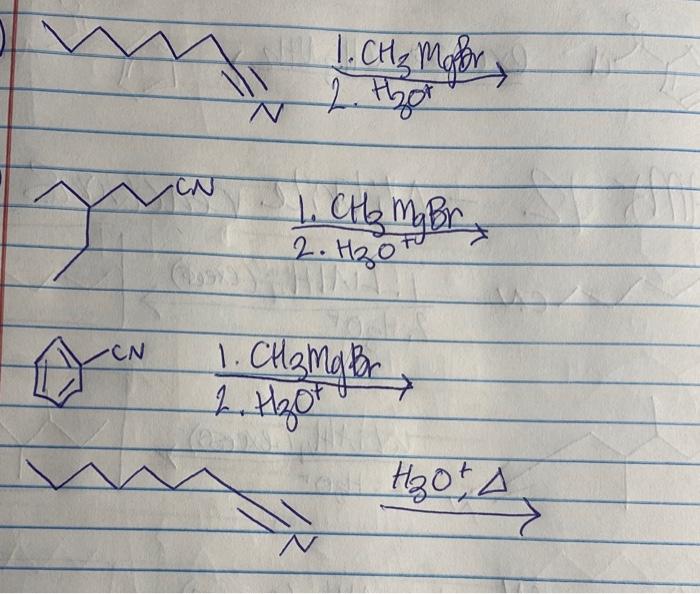 1. CH3MgBr
2. H3O+
N
CN
1. CH3MgBr
2. H3O+
CN
1. CH3MgBr
2. H3O+
H3O+, Δ
N